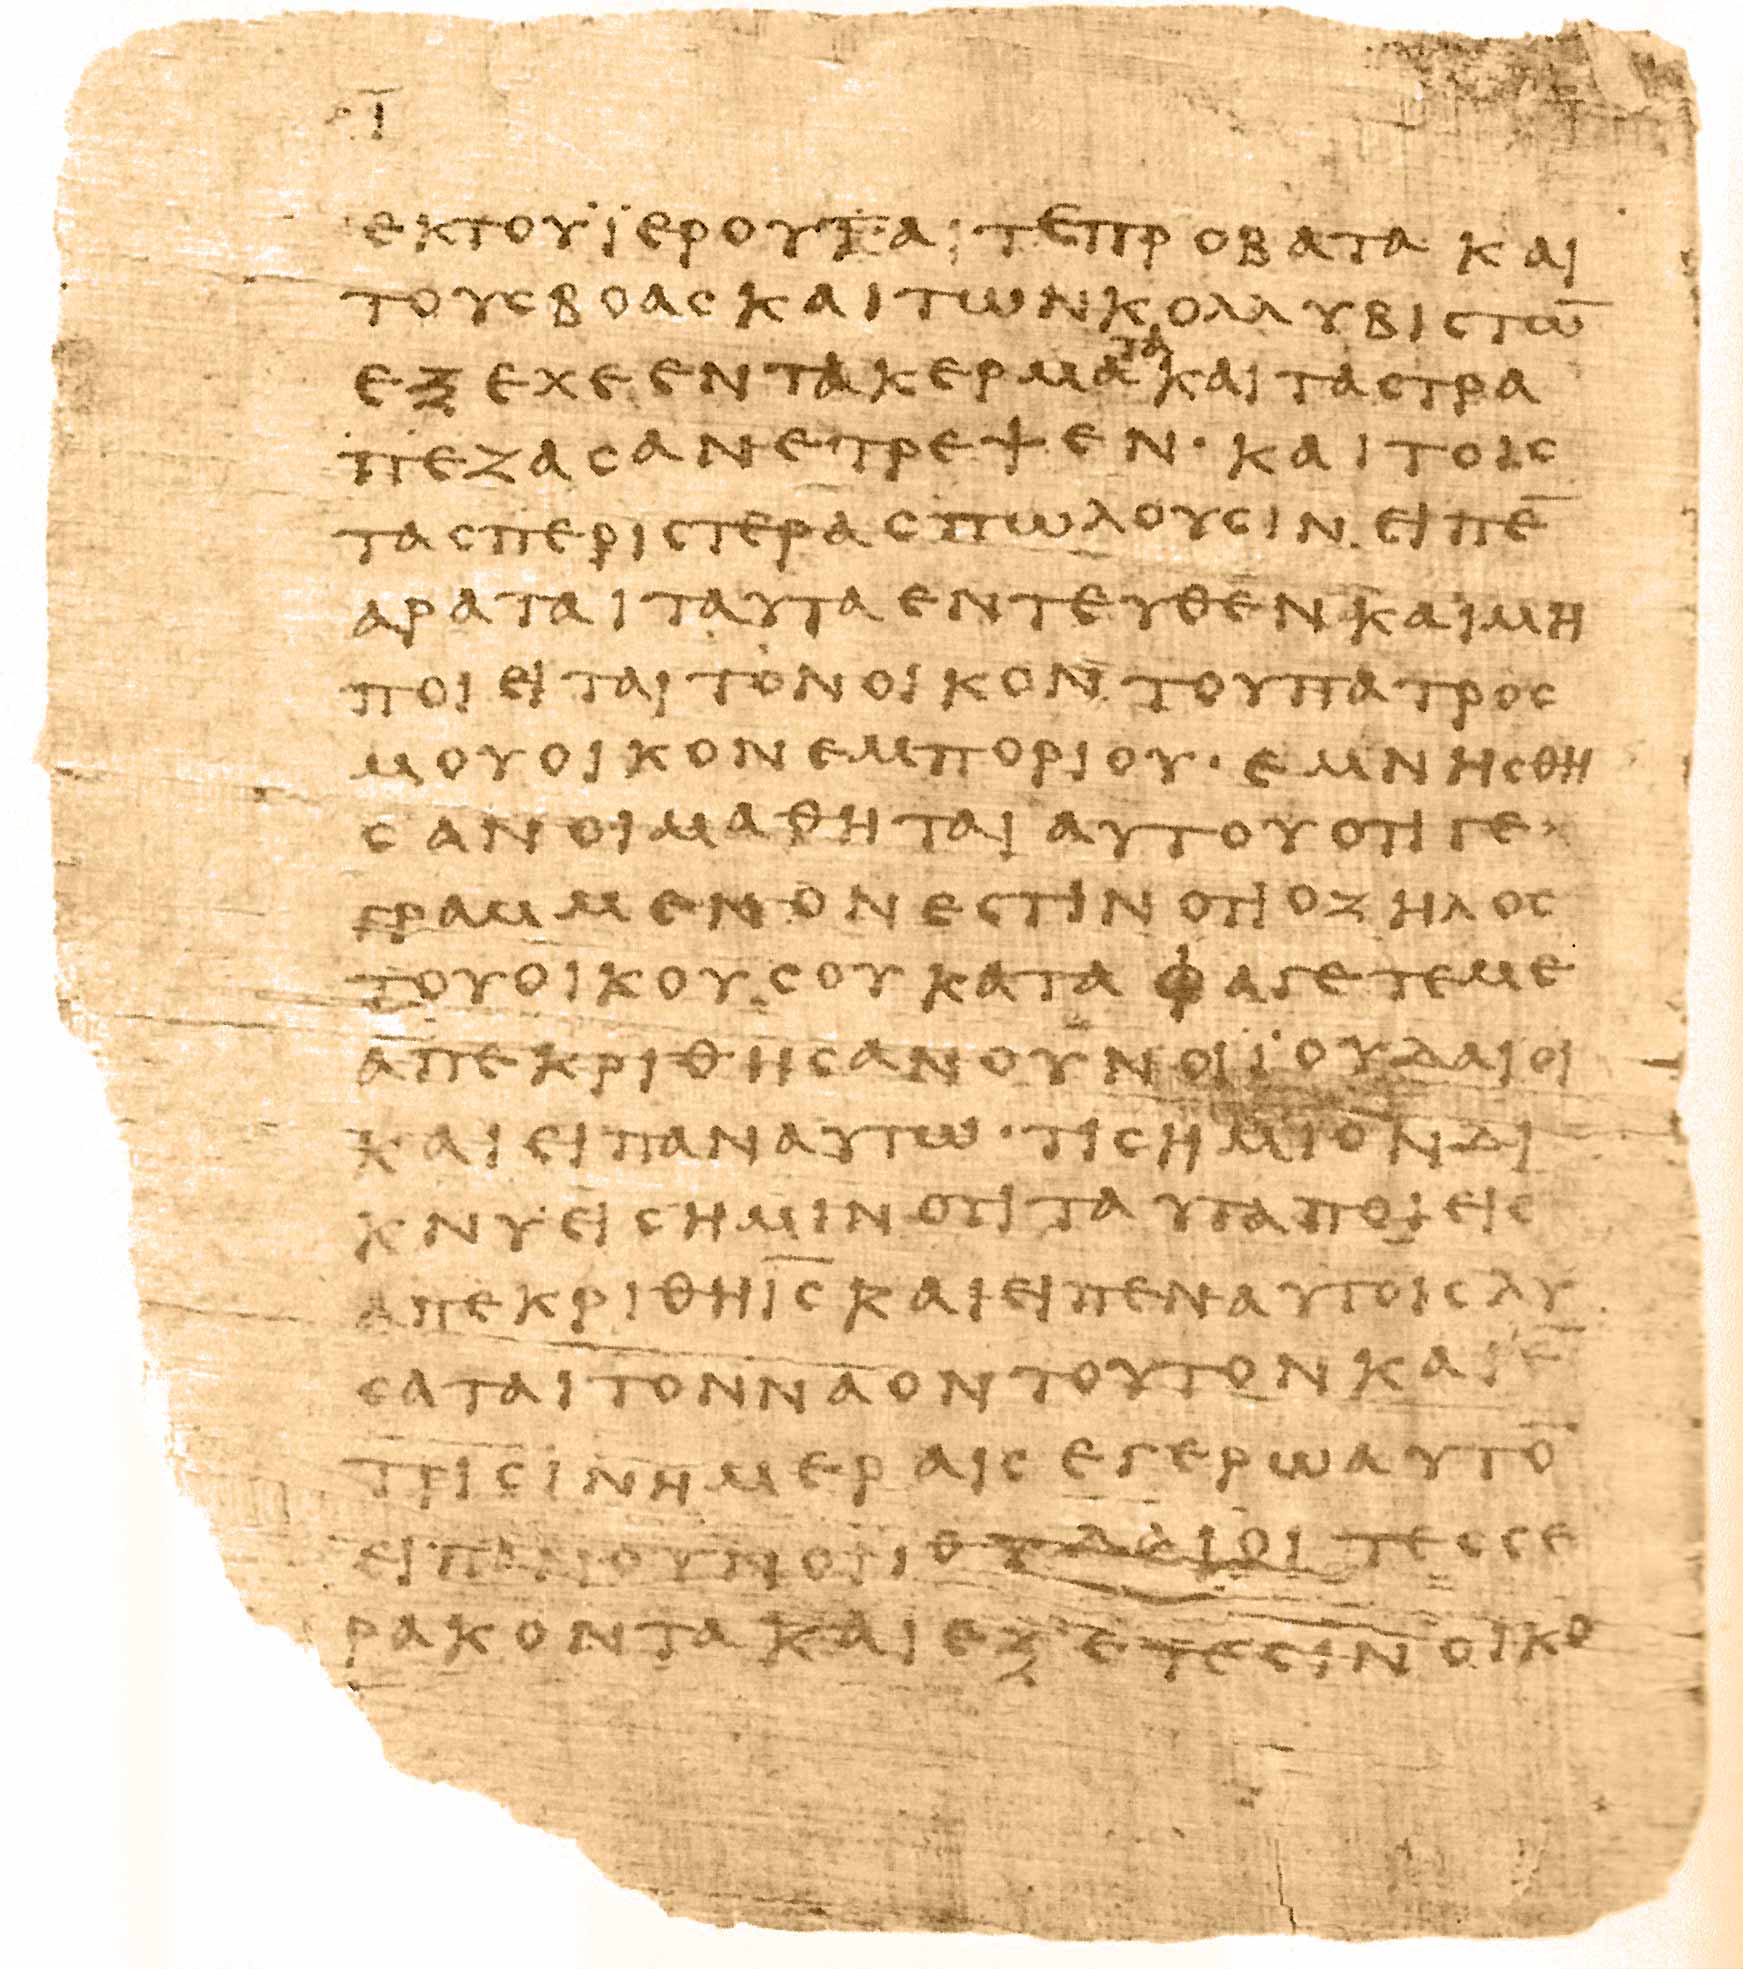 Ι̅
ΕΚΤΟΥΪΕΡΟΥΤΑ ΤΕΠΡΟΒΑΤΑΚΑΙ
ΤΟΥϹΒΟΑϹΚΑΙΤΩΝΚΟΛΛΥΒΙϹΤΩ̅
ΕΞΕΧΕΕΝΤΑΚΕΡΜΑΤΑΚΑΙΤΑϹΤΡΑ
ΠΕΖΑϹΑΝΕΤΡΕΨΕΝ·ΚΑΙΤΟΙϹ
ΤΑϹΠΕΡΙϹΤΕΡΑϹΠΩΛΟΥϹΙΝ·ΕΙΠΕ̅
ΑΡΑΤΑΙΤΑΥΤΑΕΝΤΕΥΘΕΝΚΑΙΜΗ
ΠΟΙΕΙΤΑΙΤΟΝΟΙΚΟΝΤΟΥΠΑΤΡΟϹ
ΜΟΥΟΙΚΟΝΕΜΠΟΡΙΟΥ·ΕΜΝΗϹΘΗ
ϹΑΝΟΙΜΑΘΗΤΑΙΑΥΤΟΥΟΤΙΓΕ
ΓΡΑΜΜΕΝΟΝΕϹΤΙΝΟΤΙΟΖΗΛΟϹ
ΤΟΥΟΙΚΟΥϹΟΥΚΑΤΑΦΑΓΕΤΕΜΕ
ΑΠΕΚΡΙΘΗϹΑΝΟΥΝΟΙΪΟΥΔΑΙΟΙ
ΚΑΙΕΙΠΑΝΑΥΤΩ·ΤΙϹΗΜΙΟΝΔΙ
ΚΝΥΕΙϹΗΜΙΝΟΤΙΤΑΥΤΑΠΟΙΕΙϹ
ΑΠΕΚΡΙΘΗΙ̅Ϲ̅ΚΑΙΕΙΠΕΝΑΥΤΟΙϹΛΥ
ϹΑΤΑΙΤΟΝΝΑΟΝΤΟΥΤΟΝΚΑΙΕ̅
ΤΡΙϹΙΝΗΜΕΡΑΙϹΕΓΕΡΩΑΥΤΟ̅
ΕΙΠΑΝΟΥΝΟΙΙΟΥΔΑΙΟΙΤΕϹϹΕ
ΡΑΚΟΝΤΑΚΑΙΕΞΕΤΕϹΙΝΟΙΚΟ